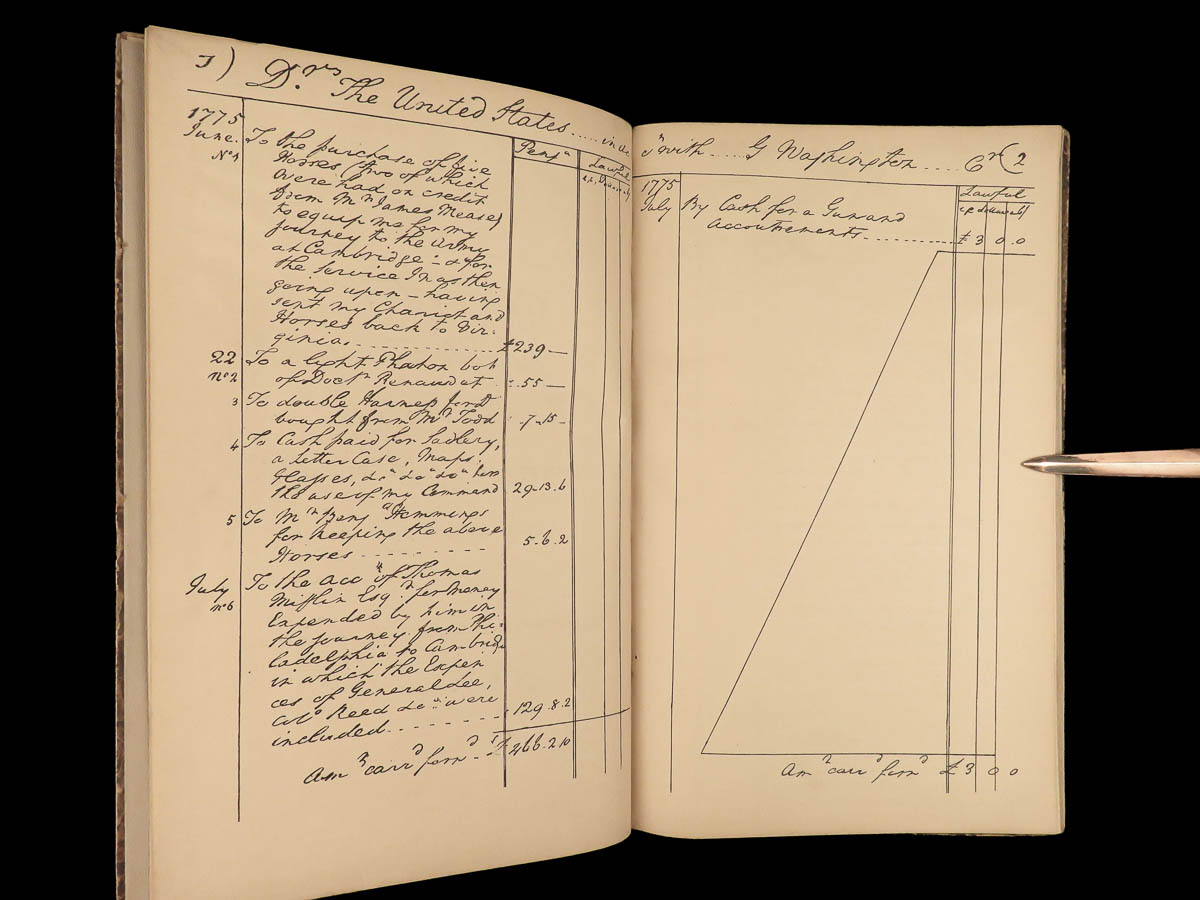 1) Drs. The United States ..... in
1775
June. Pensa Lawful
No 1 To the purchase of five
Horses (two of which
were had on credit
from Mr James Mease)
to equip me for my
journey to the Army
at Cambridge - & for
the service I was then
going upon - having
sent my Chariot and
Horses back to Vir-
ginia. £239 —
22 To a light Phaton bot
No 2 of Doctr Renaudet 55 —
3 To double Harness for Do
bought from Mr Todd 7. 15 -
4 To Cash paid for Sadlery,
a letter Case, Maps,
Glasses, &c &c &c for
the use of my Command 29. 13. 6
5 To Mr Benj Hemmings
for keeping the above
Horses 5. 6. 2
July To the acct of Thomas
No 6 Mifflin Esqr for money
Expended by him in
the journey from Phi-
ladelphia to Cambridge
in which the Expen
ces of General Lee,
Colo Reed &c were
included 129. 8. 2
Amt carrd forwd £466. 2. 10
with .... G Washington .... Cr 2
1775 Lawful
July By Cash for a Gun and
accoutrements £3 0 0
Amt carrd forwd £3 0 0